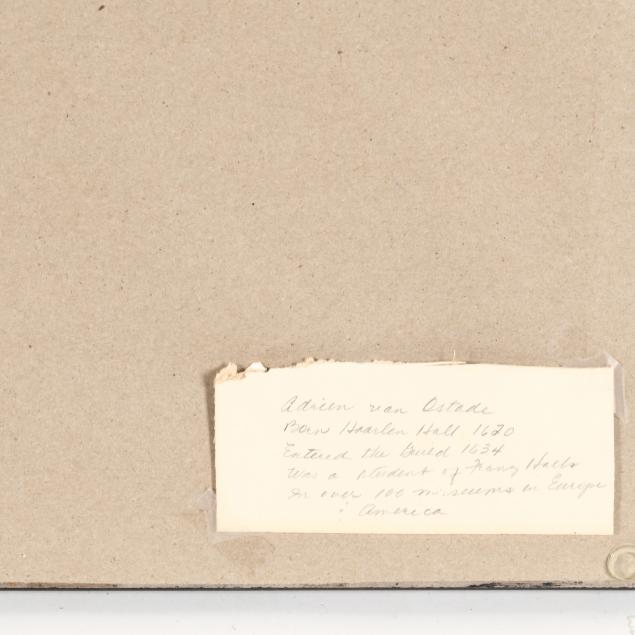 Adrien van Ostade
Born Haarlen Hall 1620
Entered the Guild 1634
Was a student of Franz Halls
In over 100 museums in Europe
& America